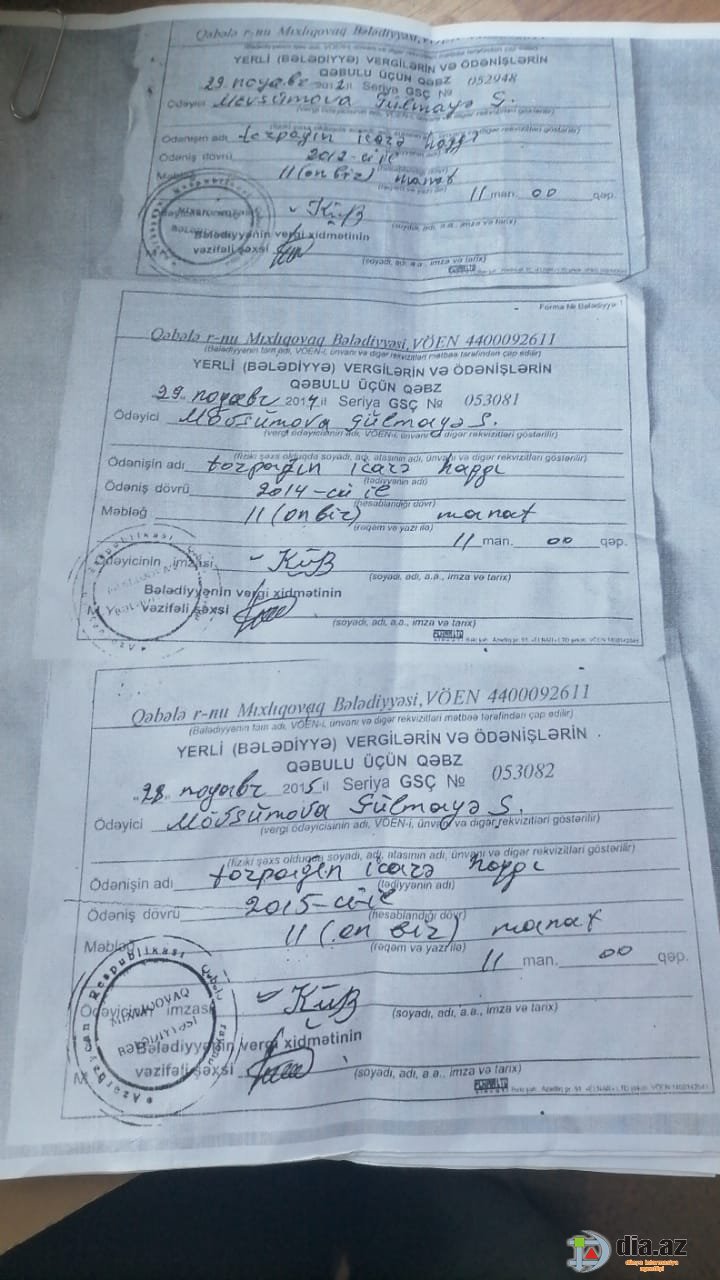 Qəbələ r-nu Mıxlıqovaq Bələdiyyəsi,
YERLİ (BƏLƏDİYYƏ) VERGİLƏRİN VƏ ÖDƏNİŞLƏRİN
QƏBULU ÜÇÜN QƏBZ
29 noyabr 2012 il Seriya GSÇ № 052948
Ödəyici Mevsümova Gülmayə S.
Ödənişin adı torpağın icarə haqqı
Ödəniş dövrü 2012-ci il
Məbləğ 11 (on bir) manat
11 man. 00 qəp.
Bələdiyyənin vergi xidmətinin
vəzifəli şəxsi
(soyadı, adı, a.a., imza və tarix)
Forma № Bələdiyyə 1
Qəbələ r-nu Mıxlıqovaq Bələdiyyəsi, VÖEN 4400092611
(Bələdiyyənin tam adı, VÖEN-i, ünvanı və digər rekvizitləri mətbəə tərəfindən çap edilir)
YERLİ (BƏLƏDİYYƏ) VERGİLƏRİN VƏ ÖDƏNİŞLƏRİN
QƏBULU ÜÇÜN QƏBZ
29 noyabr 2014 il Seriya GSÇ № 053081
Ödəyici Mövsümova Gülmayə S.
(vergi ödəyicisinin adı, VÖEN-i, ünvanı və digər rekvizitləri göstərilir)
(fiziki şəxs olduqda soyadı, adı, atasının adı, ünvanı və digər rekvizitləri göstərilir)
Ödənişin adı torpağın icarə haqqı
(tədiyyənin adı)
Ödəniş dövrü 2014-cü il
(hesablandığı dövr)
Məbləğ 11 (on bir) manat
(rəqəm və yazı ilə)
11 man. 00 qəp.
Ödəyicinin imzası
(soyadı, adı, a.a., imza və tarix)
Bələdiyyənin vergi xidmətinin
M.Y. vəzifəli şəxsi
(soyadı, adı, a.a., imza və tarix)
Qəbələ r-nu Mıxlıqovaq Bələdiyyəsi, VÖEN 4400092611
(Bələdiyyənin tam adı, VÖEN-i, ünvanı və digər rekvizitləri mətbəə tərəfindən çap edilir)
YERLİ (BƏLƏDİYYƏ) VERGİLƏRİN VƏ ÖDƏNİŞLƏRİN
QƏBULU ÜÇÜN QƏBZ
"28" noyabr 2015 il Seriya GSÇ № 053082
Ödəyici Mövsümova Gülmayə S.
(vergi ödəyicisinin adı, VÖEN-i, ünvanı və digər rekvizitləri göstərilir)
(fiziki şəxs olduqda soyadı, adı, atasının adı, ünvanı və digər rekvizitləri göstərilir)
Ödənişin adı torpağın icarə haqqı
(tədiyyənin adı)
Ödəniş dövrü 2015-ci il
(hesablandığı dövr)
Məbləğ 11 (on bir) manat
(rəqəm və yazı ilə)
11 man. 00 qəp.
Azərbaycan Respublikası Qəbələ rayonu
MIXLIQOVAQ
BƏLƏDİYYƏSİ
Ödəyicinin imzası
(soyadı, adı, a.a., imza və tarix)
Bələdiyyənin vergi xidmətinin
vəzifəli şəxsi
(soyadı, adı, a.a., imza və tarix)
dia.az
dünya informasiya
agentliyi